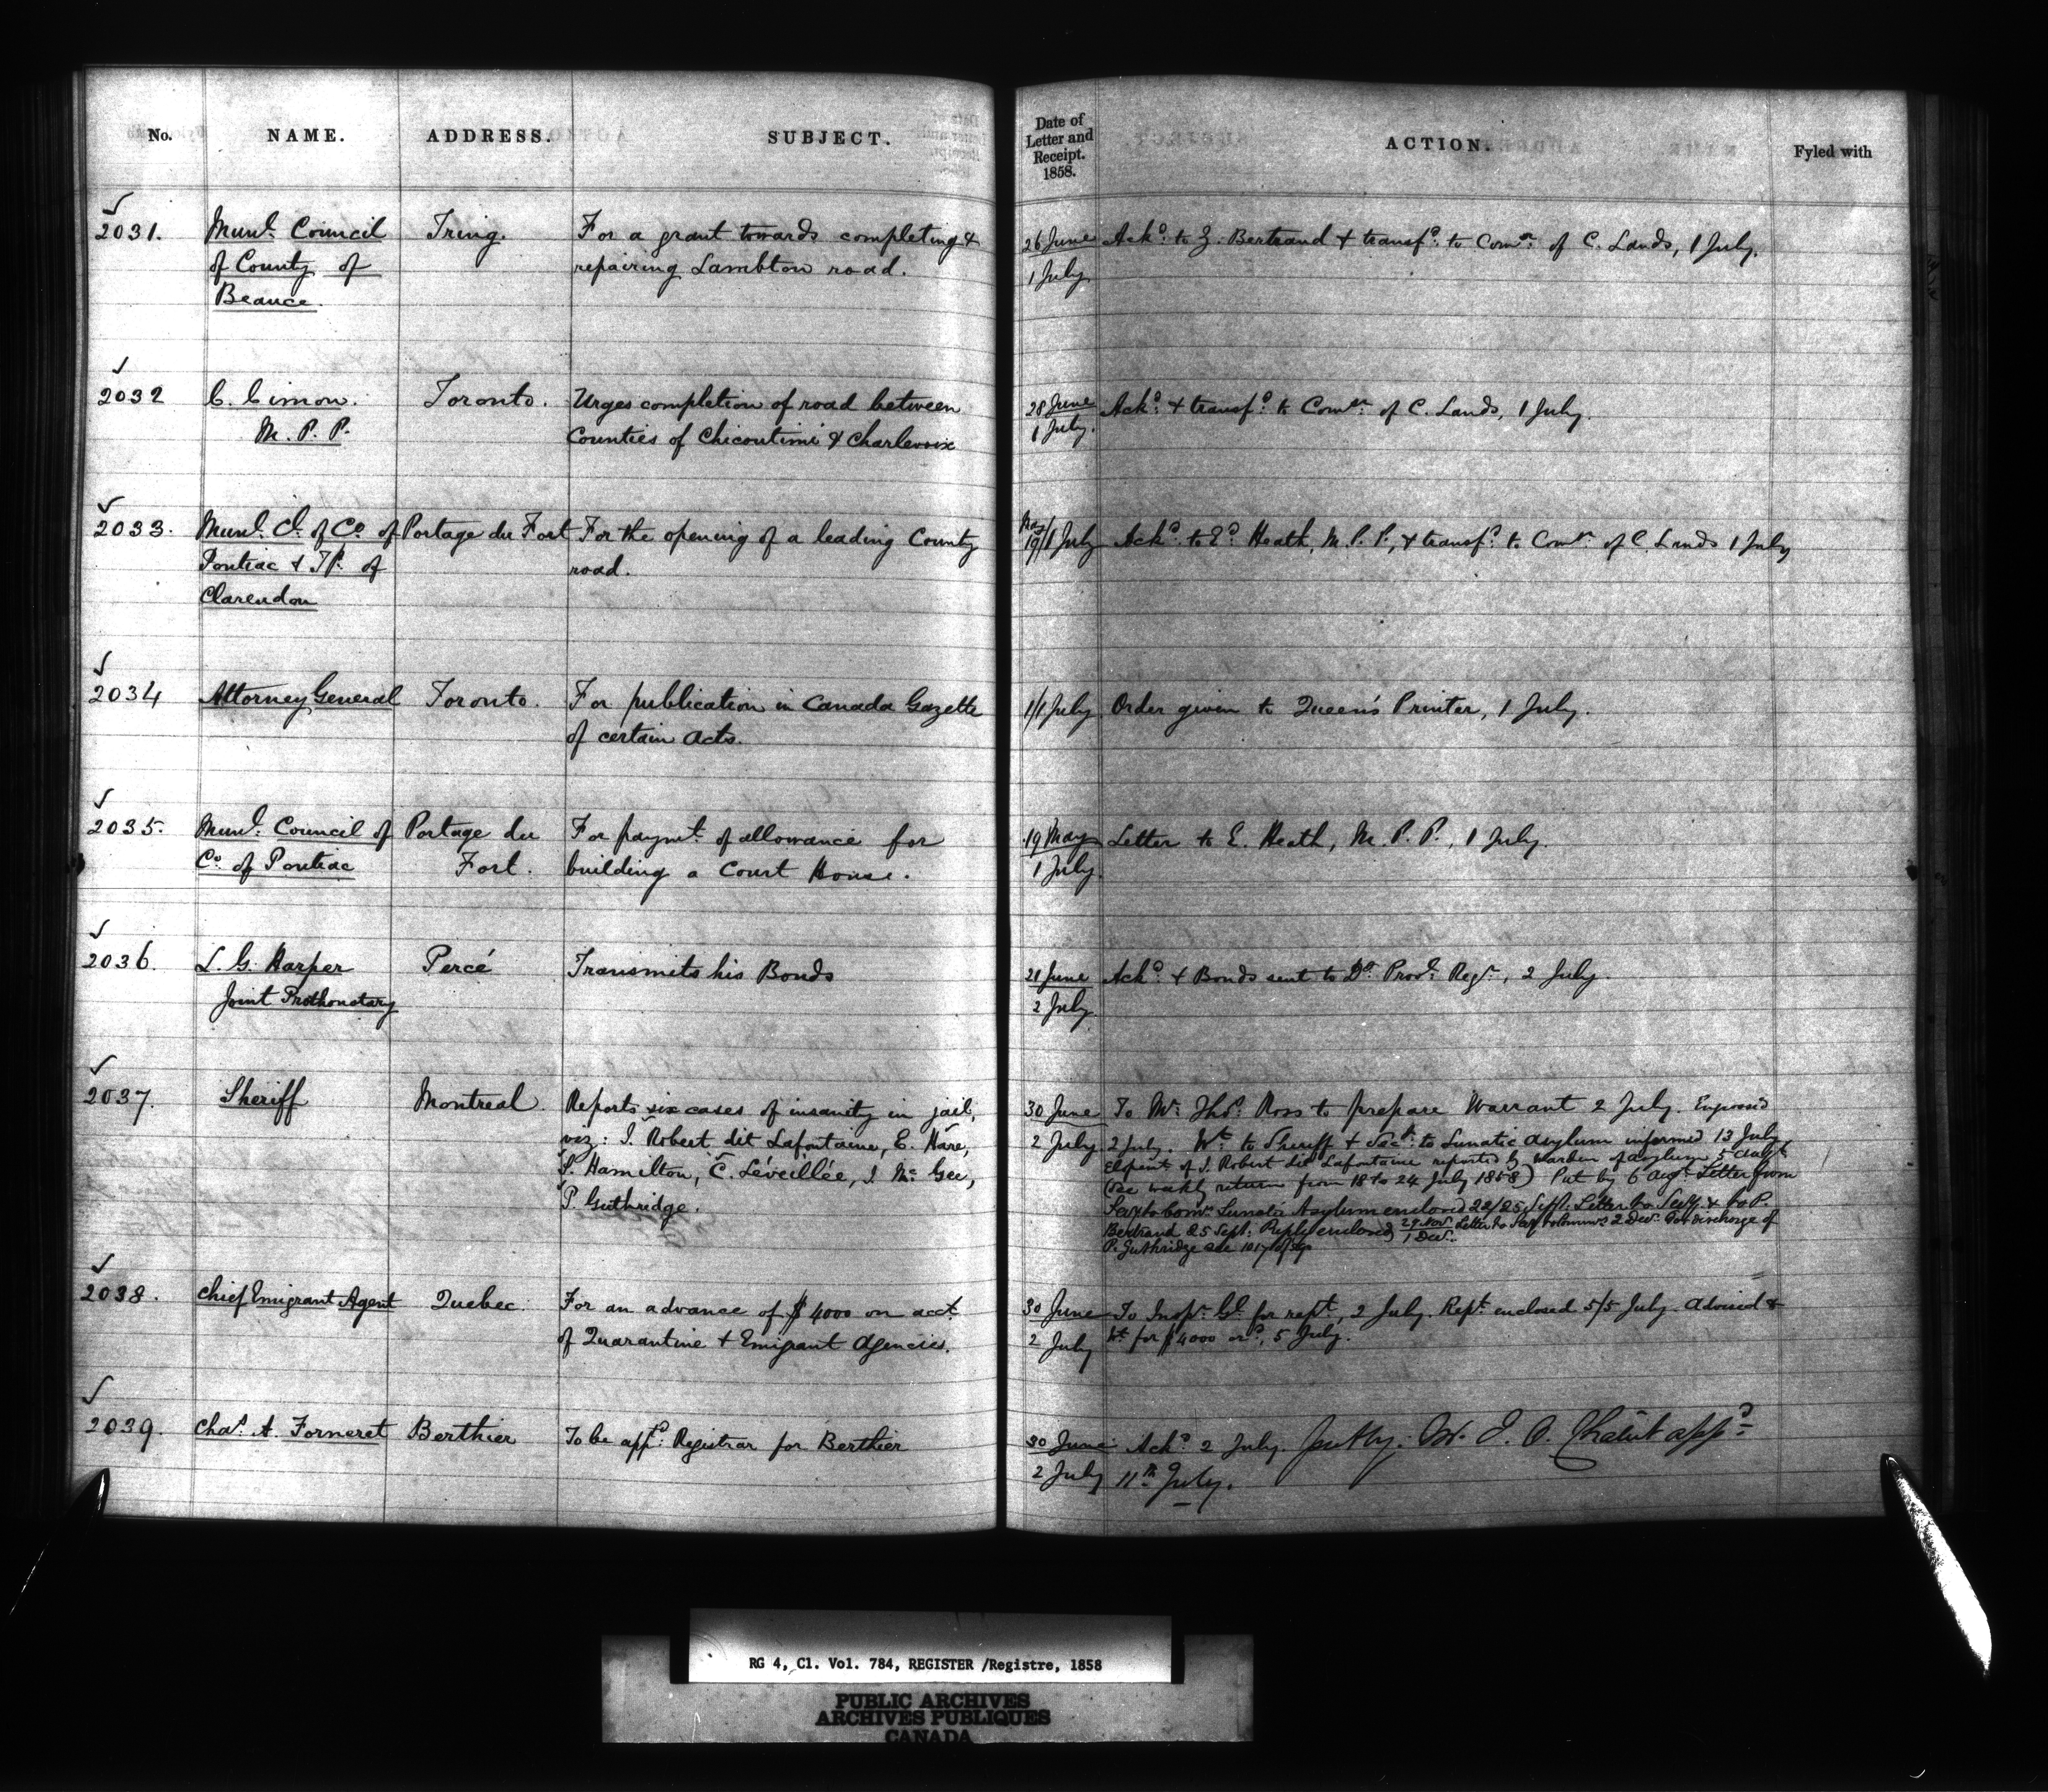 No. NAME. ADDRESS. SUBJECT. Date of Letter and Receipt. 1858. ACTION. Fyled with
2031. Munl. Council Tring. For a grant towards completing & 26 June Ackd. to Z. Bertrand & transfd. to Comr. of C. Lands, 1 July.
of County of repairing Lambton road. 1 July
Beauce.
2032 C. Cimon. Toronto. Urges completion of road between 28 June Ackd. & transfd. to Comr. of C. Lands, 1 July.
M. P. P. Counties of Chicoutimi & Charlevoix 1 July.
2033. Munl. Cl. of Co. of Portage du Fort For the opening of a leading County May 19/1 July Ackd. to Ed. Heath, M. P. P., & transfd. to Comr. of C. Lands 1 July
Pontiac & Tp. of road.
Clarendon
2034 Attorney General Toronto. For publication in Canada Gazette 1/1 July Order given to Queen's Printer, 1 July.
of certain Acts.
2035. Munl. Council of Portage du For paymt. of allowance for 19 May Letter to E. Heath, M. P. P., 1 July.
Co. of Pontiac Fort. building a Court House. 1 July.
2036. L. G. Harper Percé Transmits his Bonds 21 June Ackd. & Bonds sent to Dy. Provl. Regr., 2 July.
Joint Prothonotary 2 July
2037. Sheriff Montreal. Reports six cases of insanity in jail, 30 June To Mr. Thos. Ross to prepare Warrant 2 July. Engrossd
viz: J. Robert dit Lafontaine, E. Hare, 2 July 2 July. Wt. to Sheriff & Secy. to Lunatic Asylum informed 13 July
S. Hamilton, C. Léveillée, J. Mc Gee, Elopemt. of J. Robert dit Lafontaine reported by Warden of asylum 5 Augt.
P. Guthridge. (See weekly return from 18 to 24 July 1858) Put by 6 Augt. Letter from
Secy to Comrs. Lunatic Asylum enclosed 22/25 Sept. Letter to Secy. & to P.
Bertrand 25 Sept. Reply enclosed 29 Nov./1 Decr. Letter to Secy to Commrs 2 Decr. For discharge of
P. Guthridge see 1017 of 59
2038. Chief Emigrant Agent Quebec. For an advance of $4000 on acct. 30 June To Inspr. Gl. for rept., 2 July. Rept. enclosed 5/5 July. Advised &
of Quarantine & Emigrant Agencies. 2 July Wt. for $4000 ord., 5 July.
2039. Chas. A. Forneret Berthier To be appd. Registrar for Berthier 30 June Ackd. 2 July. Put by. Mr. J. O. appd.
2 July 11th July.
RG 4, C1. Vol. 784, REGISTER /Registre, 1858
PUBLIC ARCHIVES
ARCHIVES PUBLIQUES
CANADA